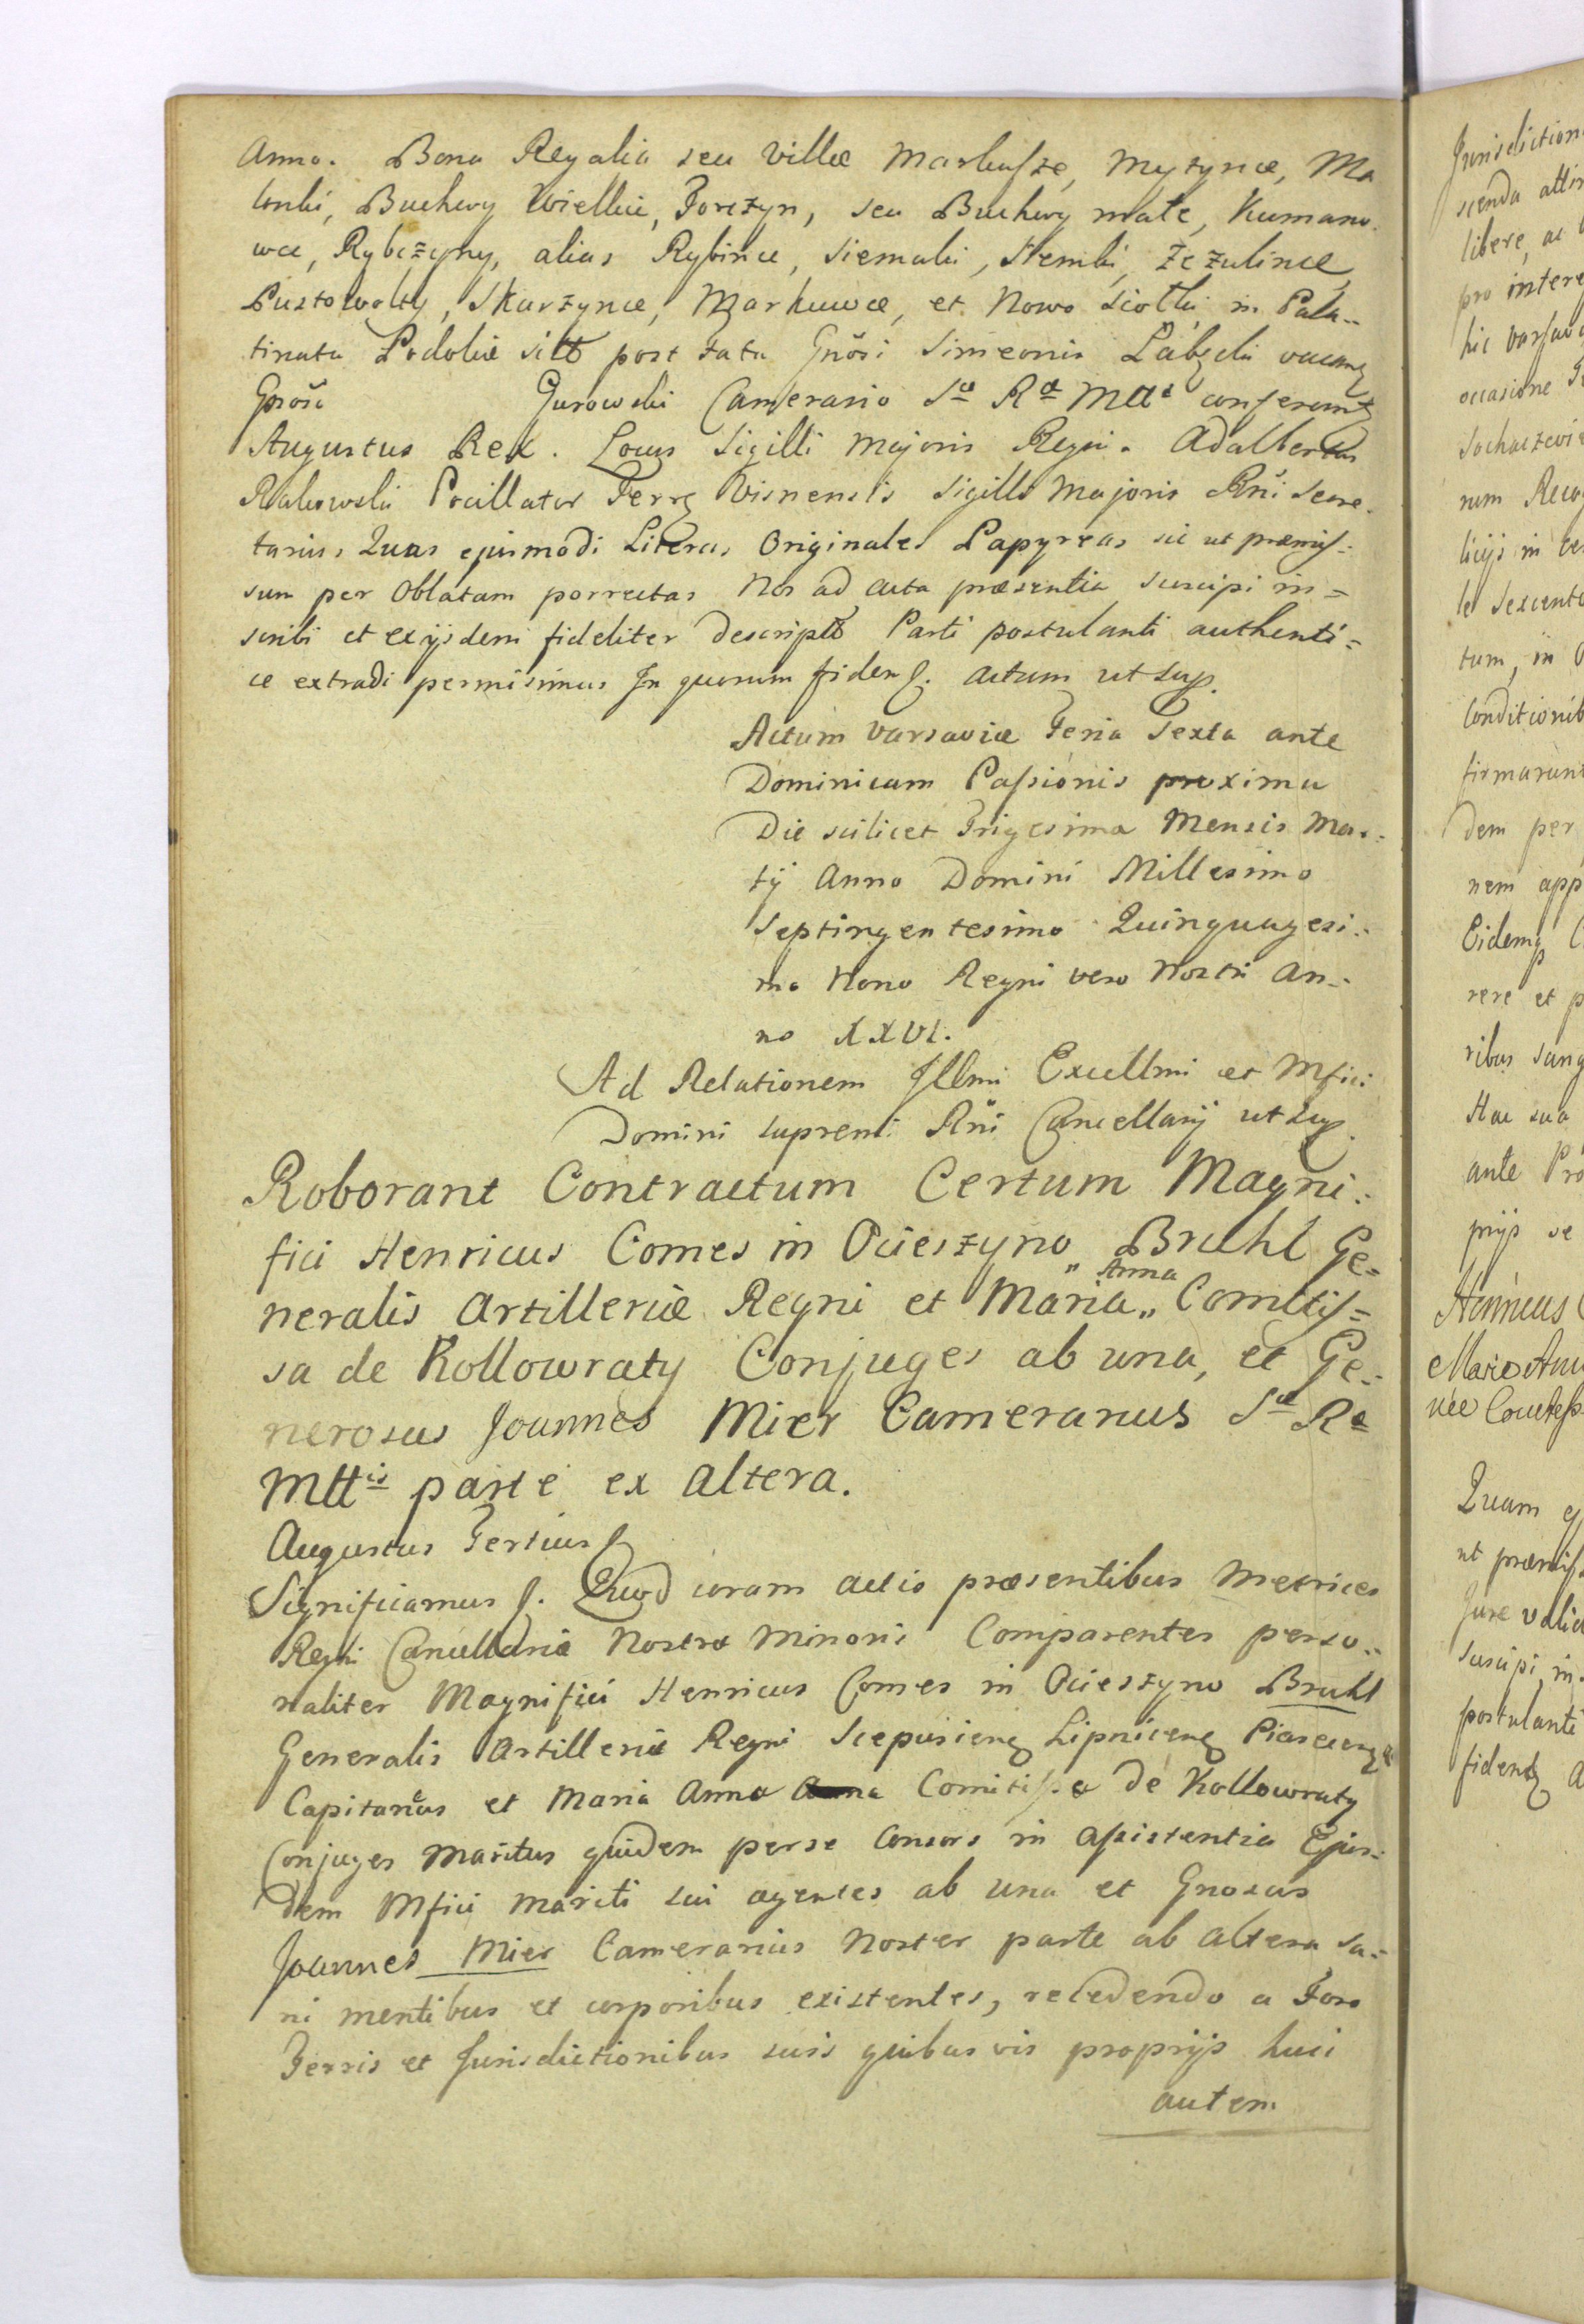 Anno. Bona Regalia seu Villæ Markusze, Mytynce, Ma
lonki, Buchny Wielkie, Forczyn, seu Buchny małe, Kumano-
wce, Rybczyny, alias Rybince, Siemaki, Stemki, Zezulince
Pustowoyty, Skarzynce, Markuwce, et Nowo siołki in Pala-
tinatu Podoliæ sitt post fata Gnosi Simeonis Łabęcki vacan
Gnoso Gurowski Camerario Sæ Ræ Mtts conferunt
Augustus Rex. Locus Sigilli Majoris Regni. Adalbertus
Rakowski Pocillator Terræ Visnensis Sigilli Majoris Rni Secre-
tarius, Quas ejusmodi Literas Originales Papyreas sic ut præmis-
sum per Oblatam porrectas Nos ad acta præsentia suscipi in=
scribi et exijsdem fideliter descriptt Parti postulanti authenti=
ce extradi permisimus In quorum fidem. Actum ut sup.
Actum Varsaviæ Feria Sexta ante
Dominicam Passionis proxima
Die scilicet Trigesima Mensis Mar-
tij Anno Domini Millesimo
Septingentesimo Quinquagesi-
mo Nono Regni vero Nostri An-
no XXVI.
Ad Relationem Illmi Excellmi et Mfici
Domini supremi Rni Cancellarij ut sup.
Roborant Contractum Certum Magni-
fici Henricus Comes in Ocieszyno Bruhl Ge=
neralis Artilleriæ Regni et Maria „Anna„ Comitis=
sa de Kollowraty Conjuges ab una, et Ge-
nerosus Joannes Mier Camerarius Sæ Ræ
Mttis parte ex altera.
Augustus Tertius
Significamus. Quod coram actis præsentibus Metrices
Regni Cancellariæ Nostræ Minoris Comparentes perso-
naliter Magnifici Henricus Comes in Ocieszyno Bruhl
Generalis Artilleriæ Regni Scepusien Lipnicen Piasecen
Capitaneus et Maria Anna Comitissa de Kollowraty
Conjuges Maritus quidem perse Consors in assistentia Ejus-
dem Mfici Mariti sui agentes ab una et Gnosus
Joannes Mier Camerarius Noster parte ab altera sa-
ni mentibus et corporibus existentes, recedendo a Foro
Terris et Jurisdictionibus suis quibusvis proprijs huic
autem
Jurisdiction
scenda attin
libere, ac
pro intere
hic Varsav
occasione
Sochaczevi
num Recog
licijs in
le Sexcent
tum, in
Conditionib
firmarunt
dem per
nem app
Eidemq C
rere et p
ribus sang
Hac sua
ante Pro
prijs se
Henricus C
Marie Ann
née Comtess
Quam ej
ut præmiss
Jure valid
suscipi, in-
postulanti
fidem A